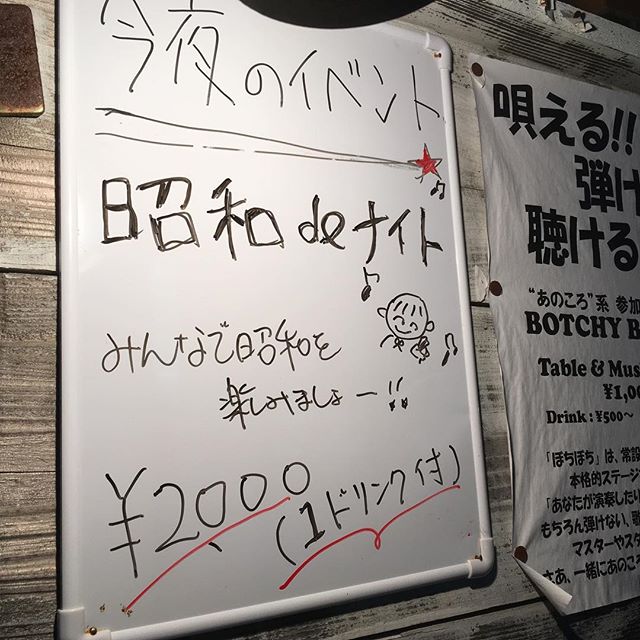 今夜のイベント
昭和deナイト
みんなで昭和を
楽しみましょー!!
¥2,000
(1ドリンク付)
唄える!!
弾け
聴ける
"あのころ"系 参加
BOTCHY B
Table & Mus
¥1,0
Drink : ¥500〜
「ぼちぼち」は、常設
本格的ステージ
「あなたが演奏したい
もちろん弾けない、歌
マスターやスタ
さあ、一緒にあのころ